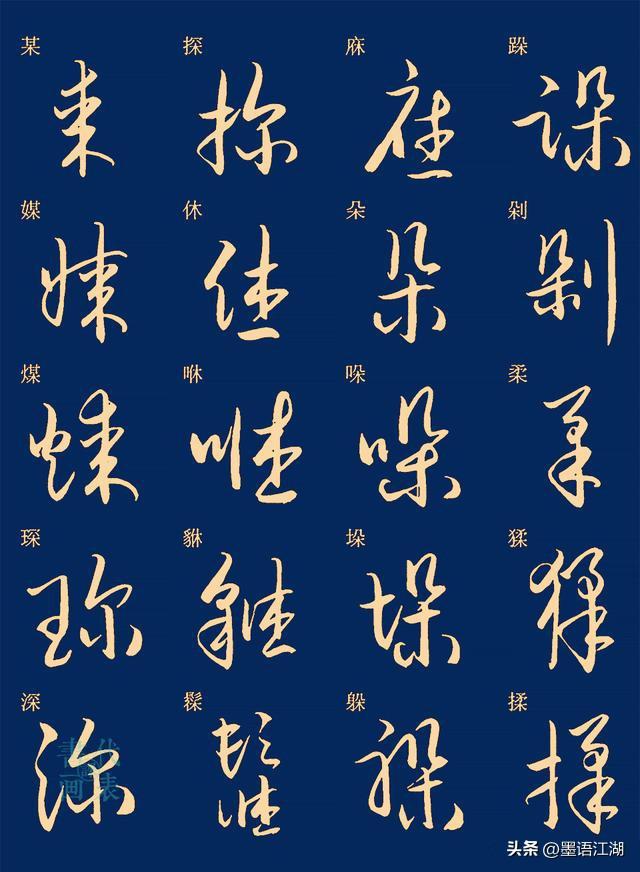 某 探 庥 跺
媒 休 朵 剁
煤 咻 哚 柔
琛 貅 垛 猱
深 髹 躲 揉
書畫代表
头条 @墨语江湖